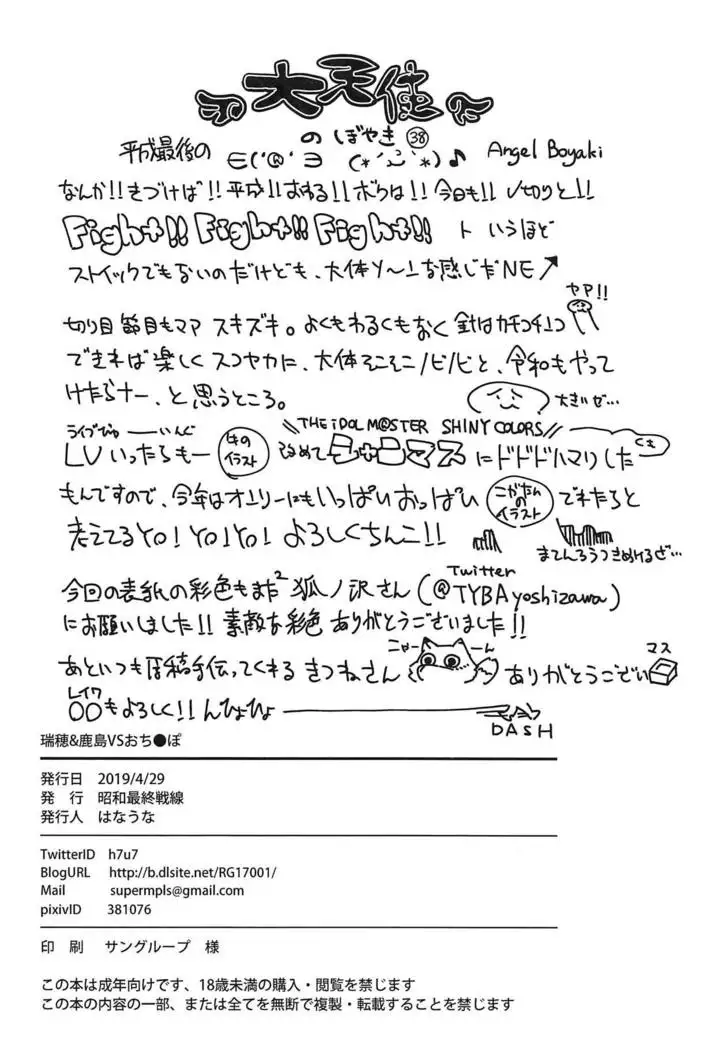 大天使
のぼやき㊳
平成最後の ∈('®'∋ (*´ー`*)♪ Angel Boyaki
なんか!!きづけば!!平成!!おわる!!ボクは!!今日も!!〆切りと!!
Fight!! Fight!! Fight!! ト いうほど
ストイックでもないのだけども、大体ソ〜ユ〜な感じだNE↗
ヤア!!
切り目節目もマア スキズキ。よくもわるくもなく 針はカチコチユコ
できれば楽しく スコヤカに、大体そこそこノビノビと、令和もやって
けたらナー、と思うところ。 大きいぜ…
\\THE iDOLM@STER SHINY COLORS//
LVいったらもー イラスト 改めてシャニマスにドドドハマりした
もんですので、今年はオンリーにもいっぱいおっぱい こがたんのイラスト でれたらと
考えてるYO!YO!YO! よろしくちんこ!!
まてんろうつきぬけるぜ…
Twitter
今回の表紙の彩色もまた² 狐ノ沢さん(@TYBAyoshizawa)
にお願いしました!! 素敵な彩色 ありがとうございました!!
ニャー ーん マス
あといつも原稿手伝ってくれる きつねさん ありがとうござい
レイワ
○○もよろしく!! んひょひょ
DASH
瑞穂&鹿島VSおち●ぽ
発行日 2019/4/29
発 行 昭和最終戦線
発行人 はなうな
TwitterID h7u7
BlogURL http://b.dlsite.net/RG17001/
Mail supermpls@gmail.com
pixivID 381076
印 刷 サングループ 様
この本は成年向けです、18歳未満の購入・閲覧を禁じます
この本の内容の一部、または全てを無断で複製・転載することを禁じます